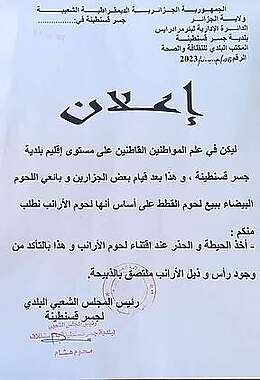 الجمهورية الجزائرية الديمقراطية الشعبية
ولاية الجزائر
جسر قسنطينة في:
الدائرة الإدارية لبئر مراد رايس
بلدية جسر قسنطينة
المكتب البلدي للنظافة والصحة
الرقم /2023
إعلان
ليكن في علم المواطنين القاطنين على مستوى إقليم بلدية
جسر قسنطينة ، و هذا بعد قيام بعض الجزارين و بائعي اللحوم
البيضاء ببيع لحوم القطط على أساس أنها لحوم الأرانب نطلب
منكم :
- أخذ الحيطة و الحذر عند إقتناء لحوم الأرانب و هذا بالتأكد من
وجود رأس و ذيل الأرانب ملتصق بالذبيحة.
رئيس المجلس الشعبي البلدي
لجسر قسنطينة
رئيس المجلس الشعبي
لبلدية جسر قسنطينة
محرم هشام